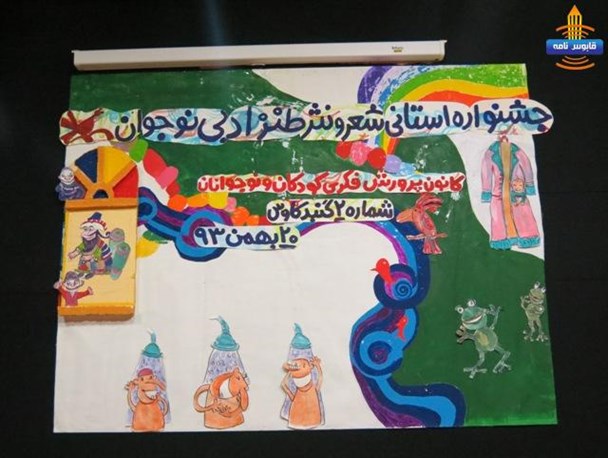 قابوس نامه
جشنواره استانی شعر و نثر طنز ادبی نوجوان
کانون پرورش فکری کودکان و نوجوانان
شماره ۲ گنبد کاووس
۲۰ بهمن ۹۳